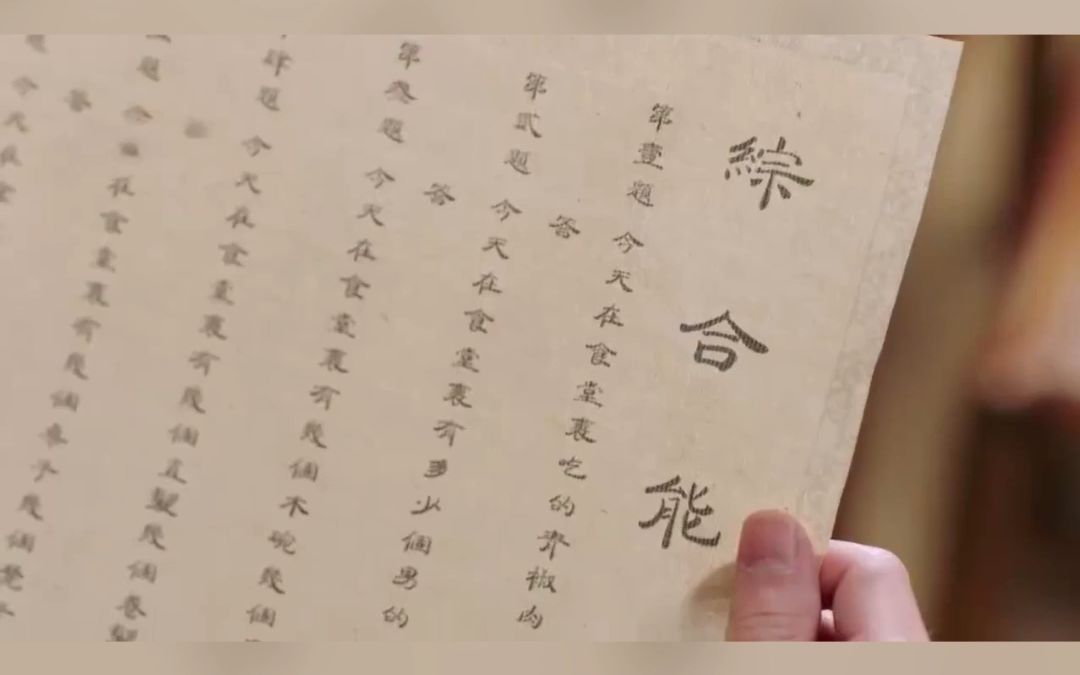 綜合能
第壹題 今天在食堂裏吃的青椒肉
答
第貳題 今天在食堂裏有多少個男的
答
第叁題 今天在食堂裏有幾個木碗幾個
肆題 今天在食堂裏有幾個直髮幾個卷髮
題 今 在食堂裏有幾個桌子幾個凳子
答
今天